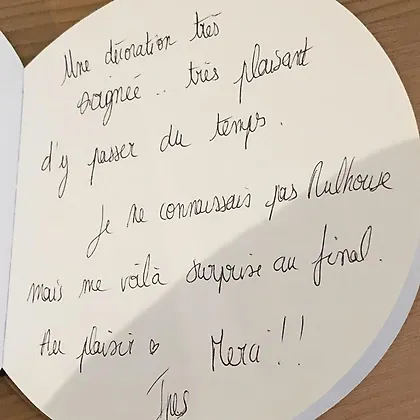 Une décoration très
soignée .. très plaisant
d'y passer du temps.
Je ne connaissais pas Mulhouse
mais me voilà surprise au final.
Au plaisir ♡ Merci !!